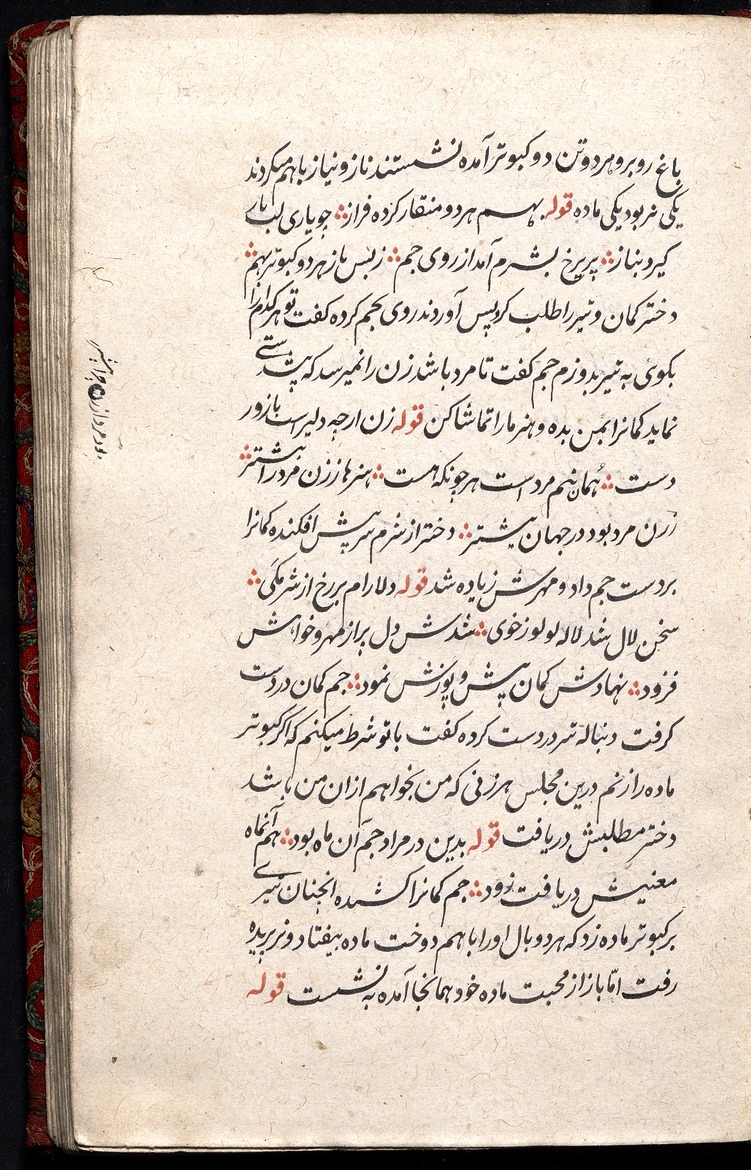 باغ روبرو هردو تن دو کبوتر آمده نشستند ناز و نیاز باهم میکردند
یکی نر بود یکی ماده قوله بهم هر دو منقار کرده فراز؞ چو یاری لب یار
گیرد بناز؞ پریرخ بشرم آمد از روی جم؞ زبس ناز هر دو کبوتر بهم؞
دختر کمان و تیر را طلب کرد پس آوردند روی بجم کرده گفت تو هر کدام را
بکوی به تیر بدوزم جم گفت تا مرد باشد زن را نمیرسد که پیشدستی
نماید کمانرا بمن بده و هنر ما را تماشا کن قوله زن ارچه دلیرست با زور
دست؞ همان نیم مردست هر چونکه هست؞ هنرها ز زن مرد را بیشتر؞
ززن مرد بود در جهان پیشتر؞ دختر از شرم سر پیش افکنده کمانرا
بردست جم داد و مهرش زیاده شد قوله دلارام بر رخ از شرمگی؞
سخن لال شد لاله لولو ز خوی؞ شدش دل پر از مهر و خواهش
فزود؞ نهادش کمان پیش و پوزش نمود؞ جم کمان در دست
گرفت دنباله تیر در دست کرده گفت با تو شرط میکنم که اگر کبوتر
ماده را زنم درین مجلس هر زنی که من بخواهم از ان من باشد
دختر مطلبش دریافت قوله بدین در مراد جم آن ماه بود؞ هم آنماه
معنیش دریافت زود؞ جم کمانرا کشیده آنچنان تیری
بر کبوتر ماده زد که هر دو بال او را باهم دوخت ماده بیفتاد و نر پریده
رفت اما باز از محبت ماده خود همانجا آمده به نشست قوله